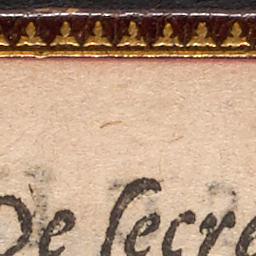 De ſecre